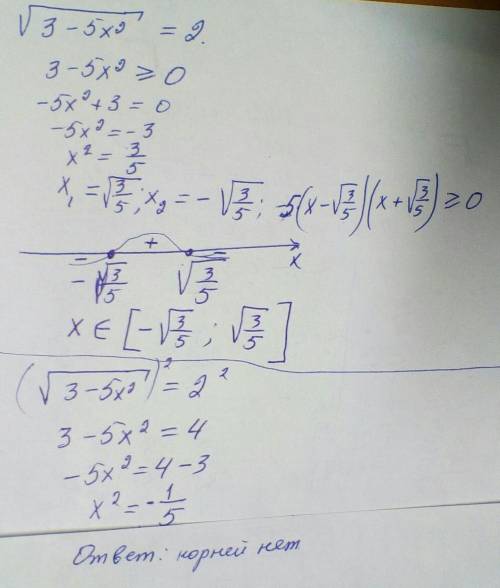 √(3 - 5x²) = 2.
3 - 5x² ≥ 0
-5x² + 3 = 0
-5x² = -3
x² = 3/5
x₁ = √(3/5); x₂ = -√(3/5); -5(x - √(3/5))(x + √(3/5)) ≥ 0
- + -
-√(3/5) √(3/5) x
x ∈ [-√(3/5); √(3/5)]
(√(3 - 5x²))² = 2²
3 - 5x² = 4
-5x² = 4 - 3
x² = -1/5
Ответ: корней нет